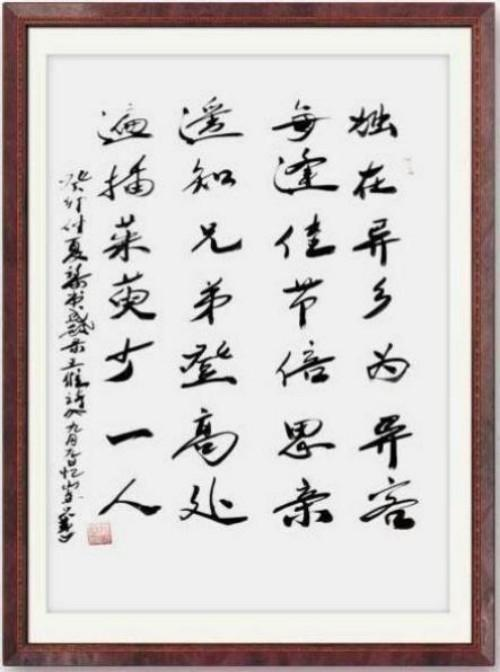 独在异乡为异客
每逢佳节倍思亲
遥知兄弟登高处
遍插茱萸少一人
夏 王维诗 九月九日忆山东